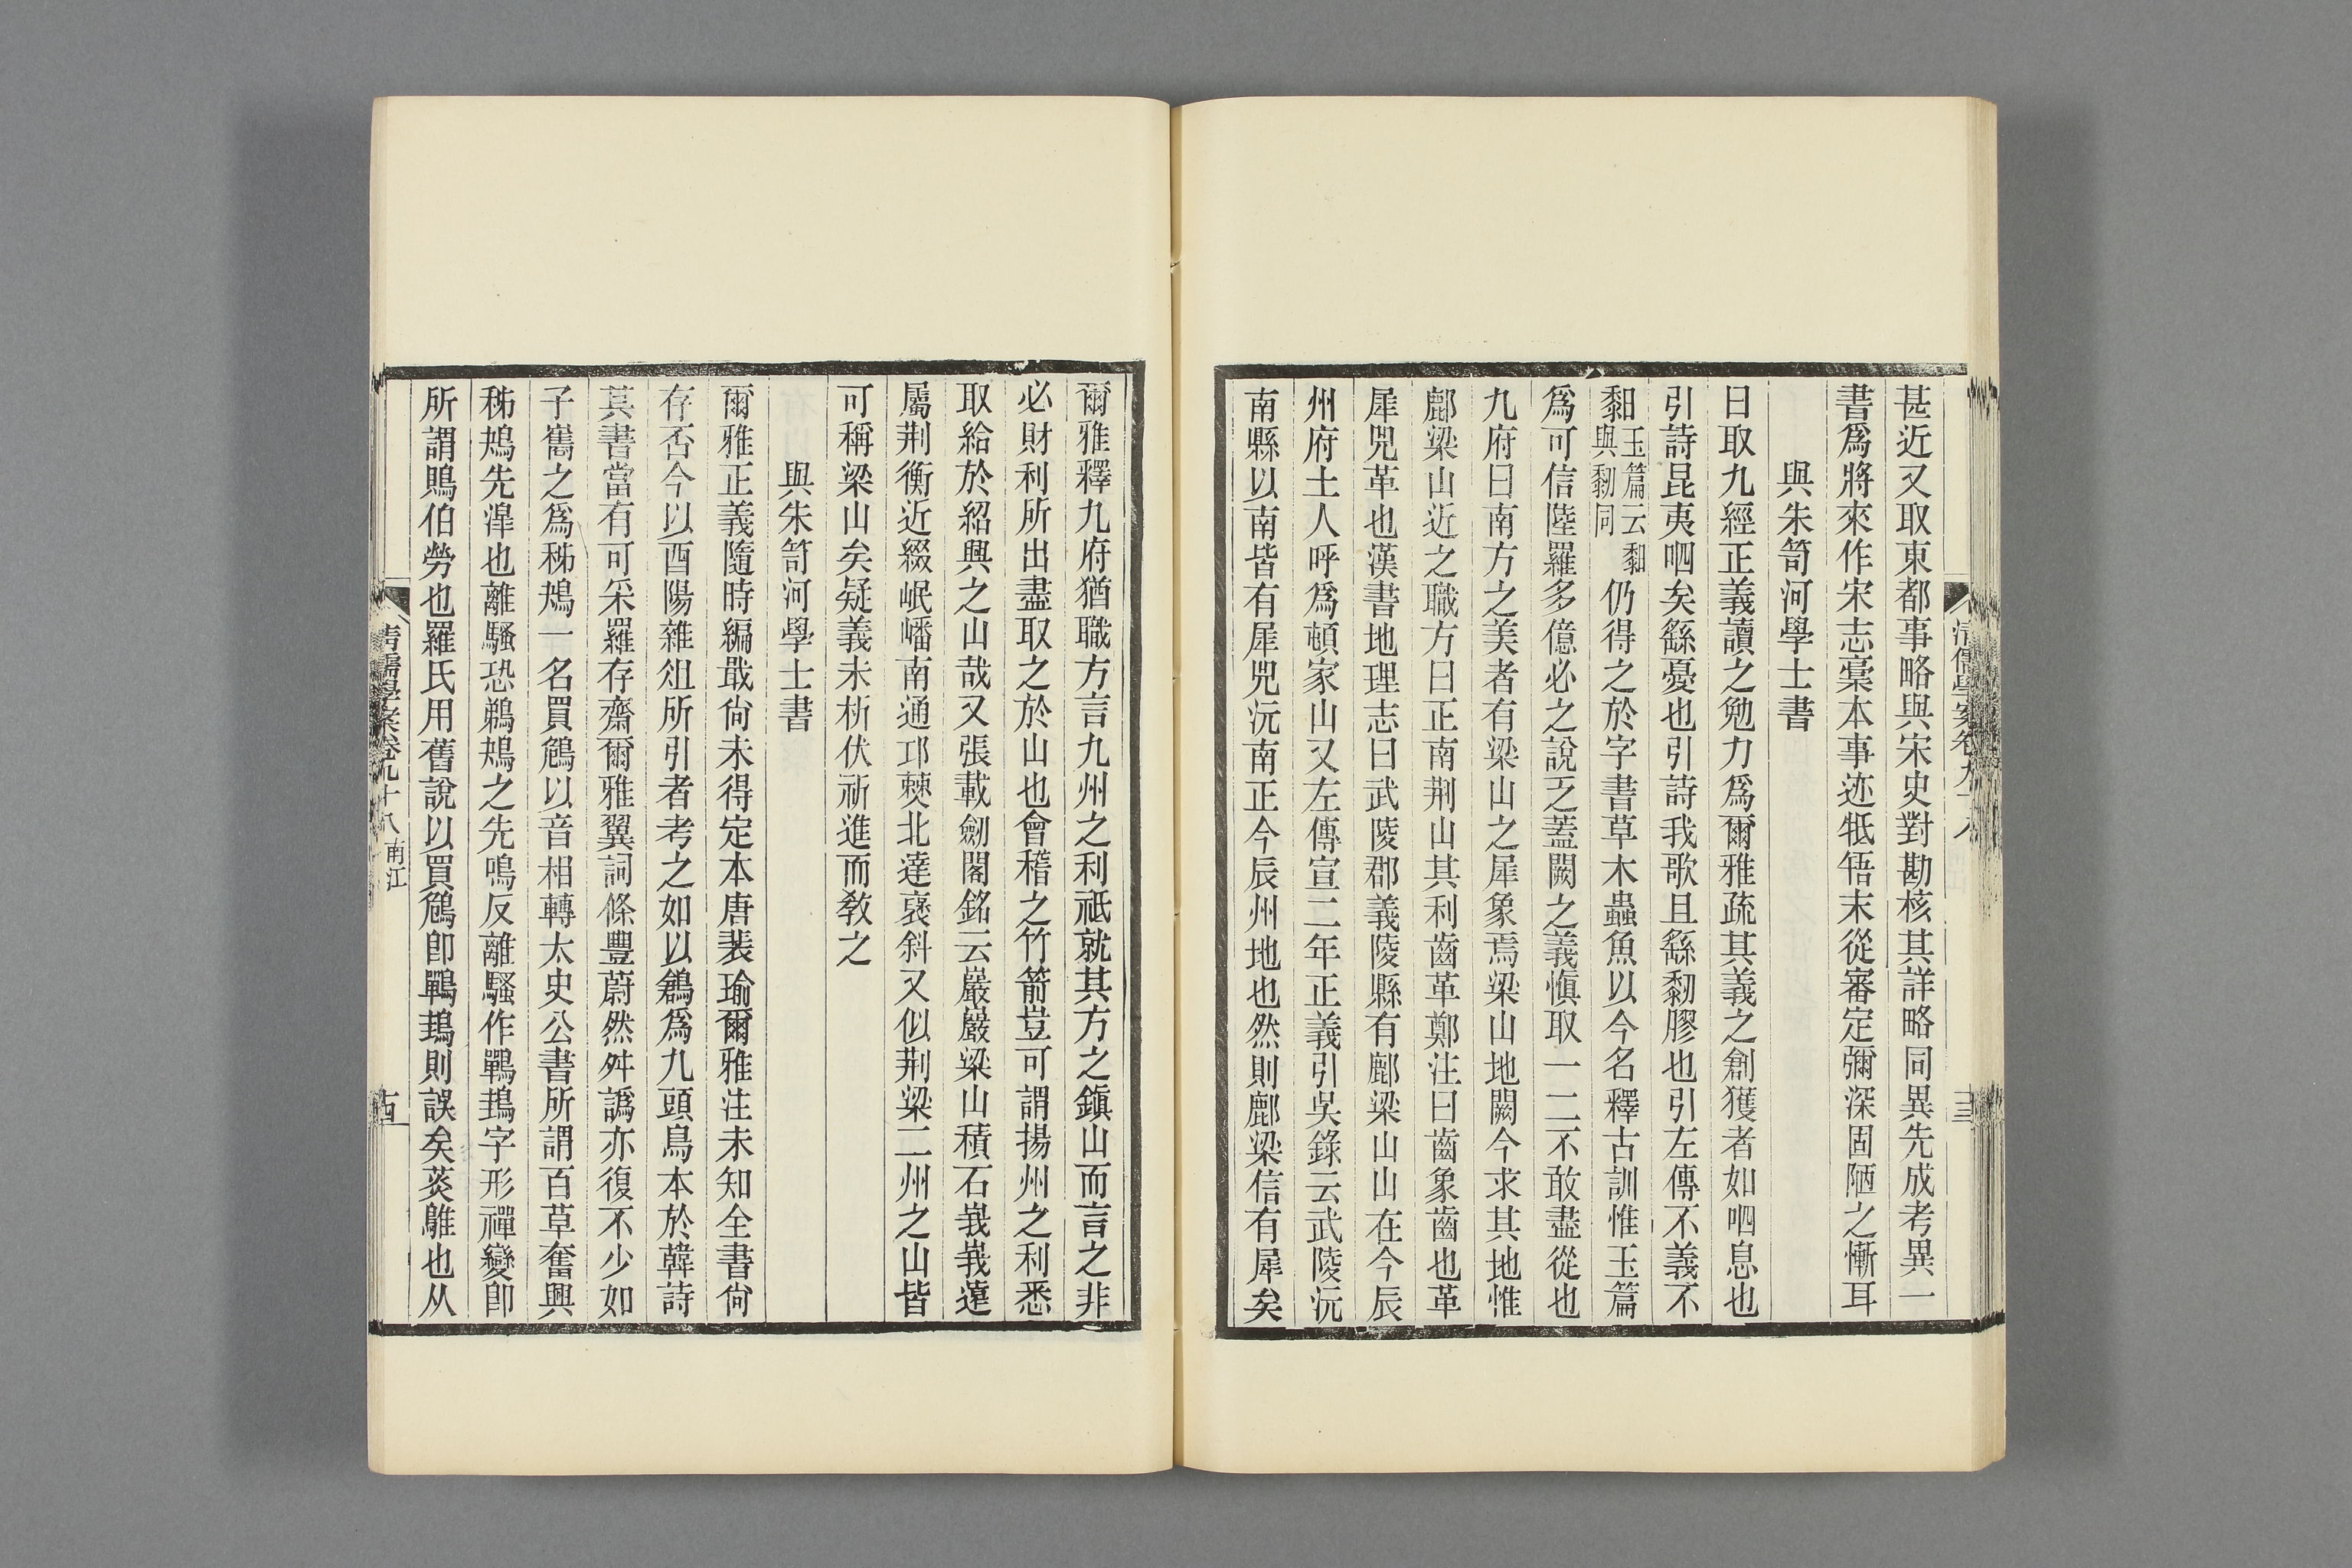 甚近又取東都事略與宋史對勘核其詳略同異先成考異一
書爲將來作宋志藁本事迹牴牾未從審定彌深固陋之慚耳
與朱笥河學士書
日取九經正義讀之勉力爲爾雅疏其義之創獲者如呬息也
引詩昆夷呬矣繇憂也引詩我歌且繇黏膠也引左傳不義不
䵑玉篇云䵑與䵒同仍得之於字書草木蟲魚以今名釋古訓惟玉篇
爲可信陸羅多億必之說乏蓋闕之義愼取一二不敢盡從也
九府曰南方之美者有梁山之犀象焉梁山地闕今求其地惟
酈梁山近之職方曰正南荆山其利齒革鄭注曰齒象齒也革
犀兕革也漢書地理志曰武陵郡義陵縣有酈梁山山在今辰
州府土人呼爲頓家山又左傳宣二年正義引吳錄云武陵沅
南縣以南皆有犀兕沅南正今辰州地也然則酈梁信有犀矣
清儒學案卷九十八
十三
爾雅釋九府猶職方言九州之利祗就其方之鎭山而言之非
必財利所出盡取之於山也會稽之竹箭豈可謂揚州之利悉
取給於紹興之山哉又張載劒閣銘云巖巖梁山積石峩峩遠
屬荆衡近綴岷嶓南通邛僰北達褒斜又似荆梁二州之山皆
可稱梁山矣疑義未析伏祈進而敎之
與朱笥河學士書
爾雅正義隨時編戢尙未得定本唐裴瑜爾雅注未知全書尙
存否今以酉陽雜俎所引者考之如以鶬爲九頭鳥本於韓詩
其書當有可采羅存齋爾雅翼詞條豐蔚然舛譌亦復不少如
子巂之爲秭鴂一名買鵤以音相轉太史公書所謂百草奮興
秭鴂先滜也離騷恐鵜鴂之先鳴反離騷作鷤䳏字形禪變卽
所謂鵙伯勞也羅氏用舊說以買鵤卽鷤䳏則誤矣菼鵻也从
清儒學案卷九十八 南江
十四